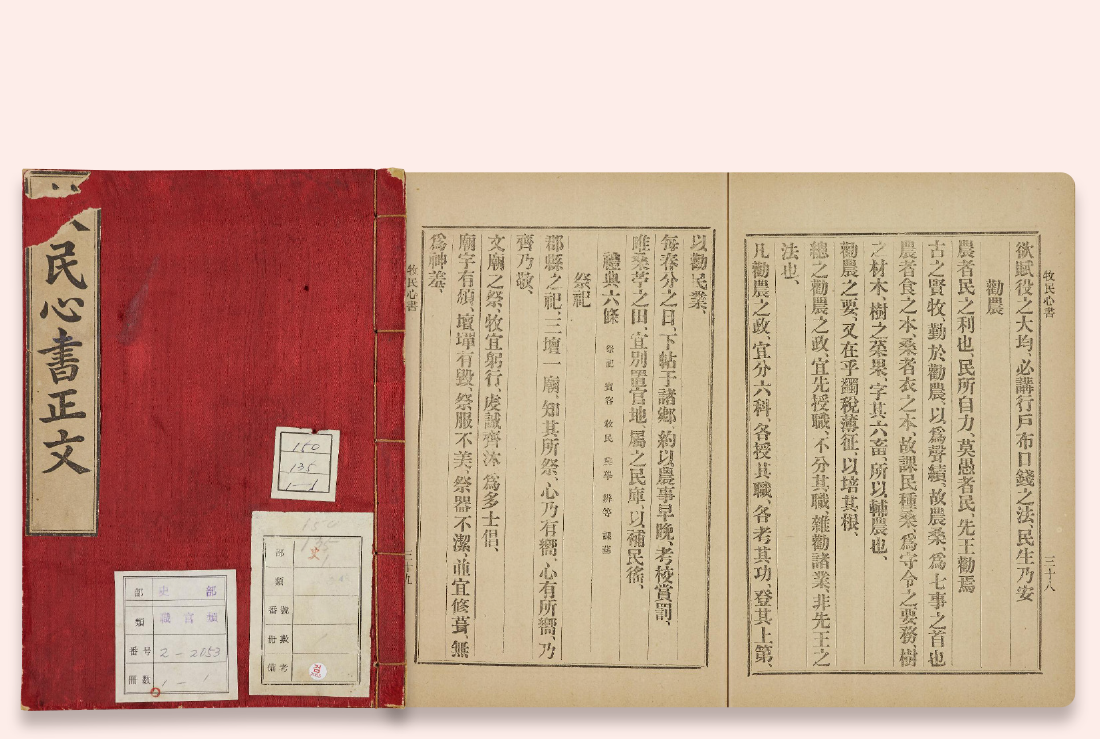 民心書正文
150
135
1-1
部 史 部
類 職官類
番号 2-2153
冊数 1-1
部 史
類
番號
冊數
備考
牧民心書
三十八
欲賦役之大均、必講行戶布口錢之法、民生乃安
勸農
農者民之利也、民所自力、莫愚者民、先王勸焉
古之賢牧、勤於勸農、以爲聲績、故農桑、爲七事之首也
農者食之本、桑者衣之本、故課民種桑、爲守令之要務、樹
之材木、樹之菜果、字其六畜、所以輔農也、
勸農之要、又在乎蠲稅薄征、以培其根、
總之勸農之政、宜先授職、不分其職、雜勸諸業、非先王之
法也、
凡勸農之政、宜分六科、各授其職、各考其功、登其上第、
以勸民業、
每春分之日、下帖于諸鄕、約以農事早晚、考校賞罰、
唯桑苧之田、宜別置官地、屬之民庫、以補民徭、
禮典六條 祭祀 賓客 敎民 興學 辨等 課藝
祭祀
郡縣之祀、三壇一廟、知其所祭、心乃有嚮、心有所嚮、乃
齊乃敬、
文廟之祭、牧宜躬行、虔誠齊沐、爲多士倡、
廟宇有頹、壇墠有毀、祭服不美、祭器不潔、並宜修葺、無
爲神羞、
牧民心書
三十九